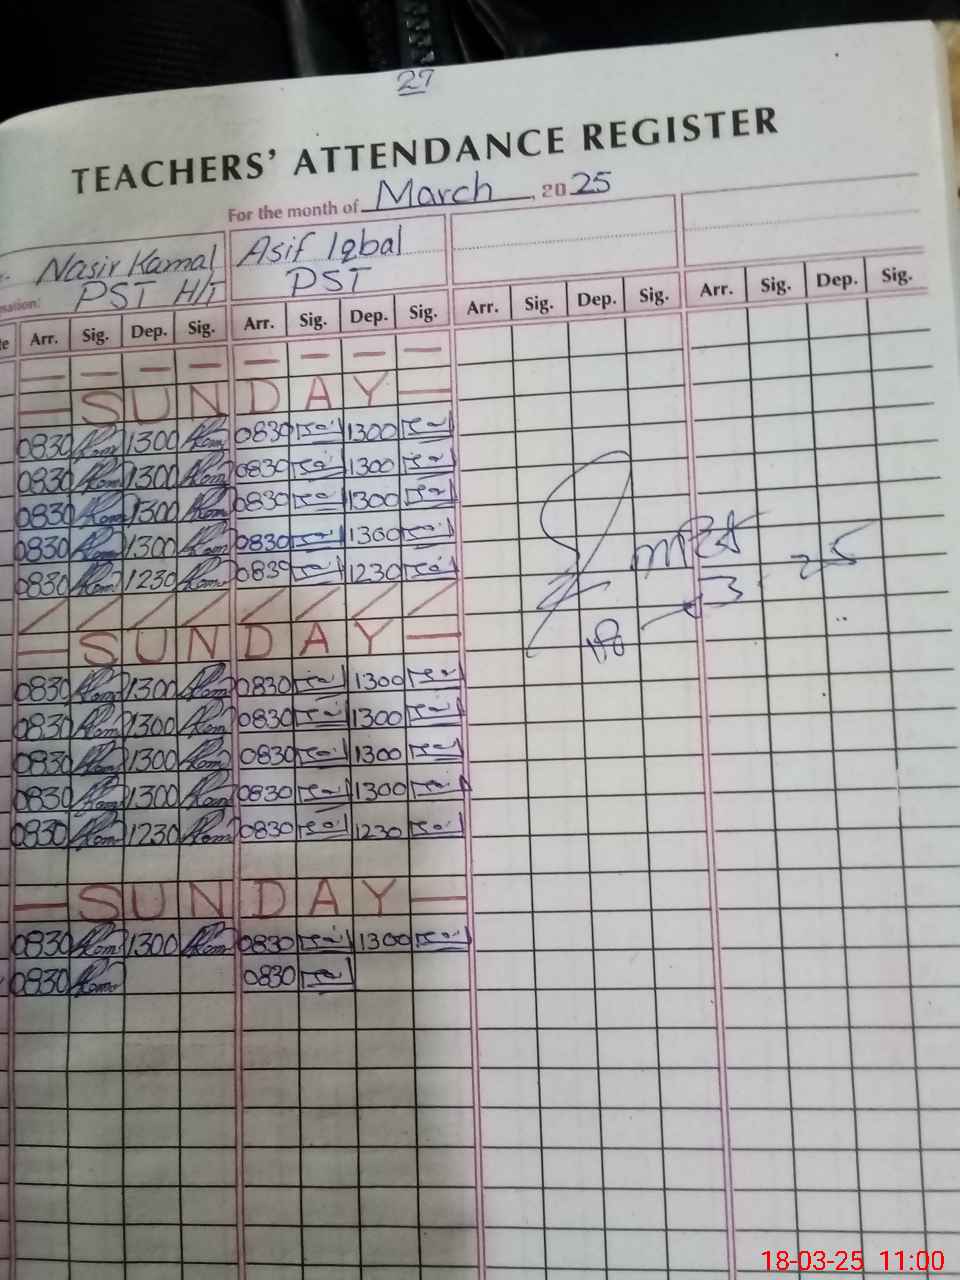 27
TEACHERS' ATTENDANCE REGISTER
For the month of March, 2025
Nasir Kamal Asif Iqbal
PST H/T PST
Arr. Sig. Dep. Sig. Arr. Sig. Dep. Sig. Arr. Sig. Dep. Sig. Arr. Sig. Dep. Sig.
— — — — — — — —
— SUNDAY —
0830 1300 0830 1300
0830 1300 0830 1300
0830 1300 0830 1300
0830 1300 0830 1300
0830 1230 0830 1230
— SUNDAY —
0830 1300 0830 1300
0830 1300 0830 1300
0830 1300 0830 1300
0830 1300 0830 1300
0830 1230 0830 1230
— SUNDAY —
0830 1300 0830 1300
0830 0830
18-3-25
18-03-25 11:00